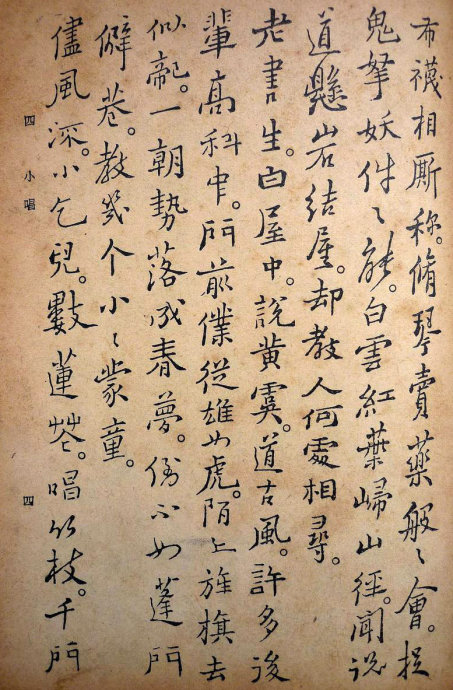 布襪相厮称。脩琴賣藥般〻會。捉
鬼拏妖件〻能。白雲紅葉歸山徑。聞説
道懸岩結屋。却教人何處相尋。
老書生。白屋中。說黄虞。道古風。許多後
輩高科中。門前僕從雄如虎。陌上旌旗去
似龍。一朝勢落成春夢。倒不如蓬門
僻巷。教幾个小〻蒙童。
儘風流。小乞兒。數蓮花。唱竹枝。千門
四 小唱 四